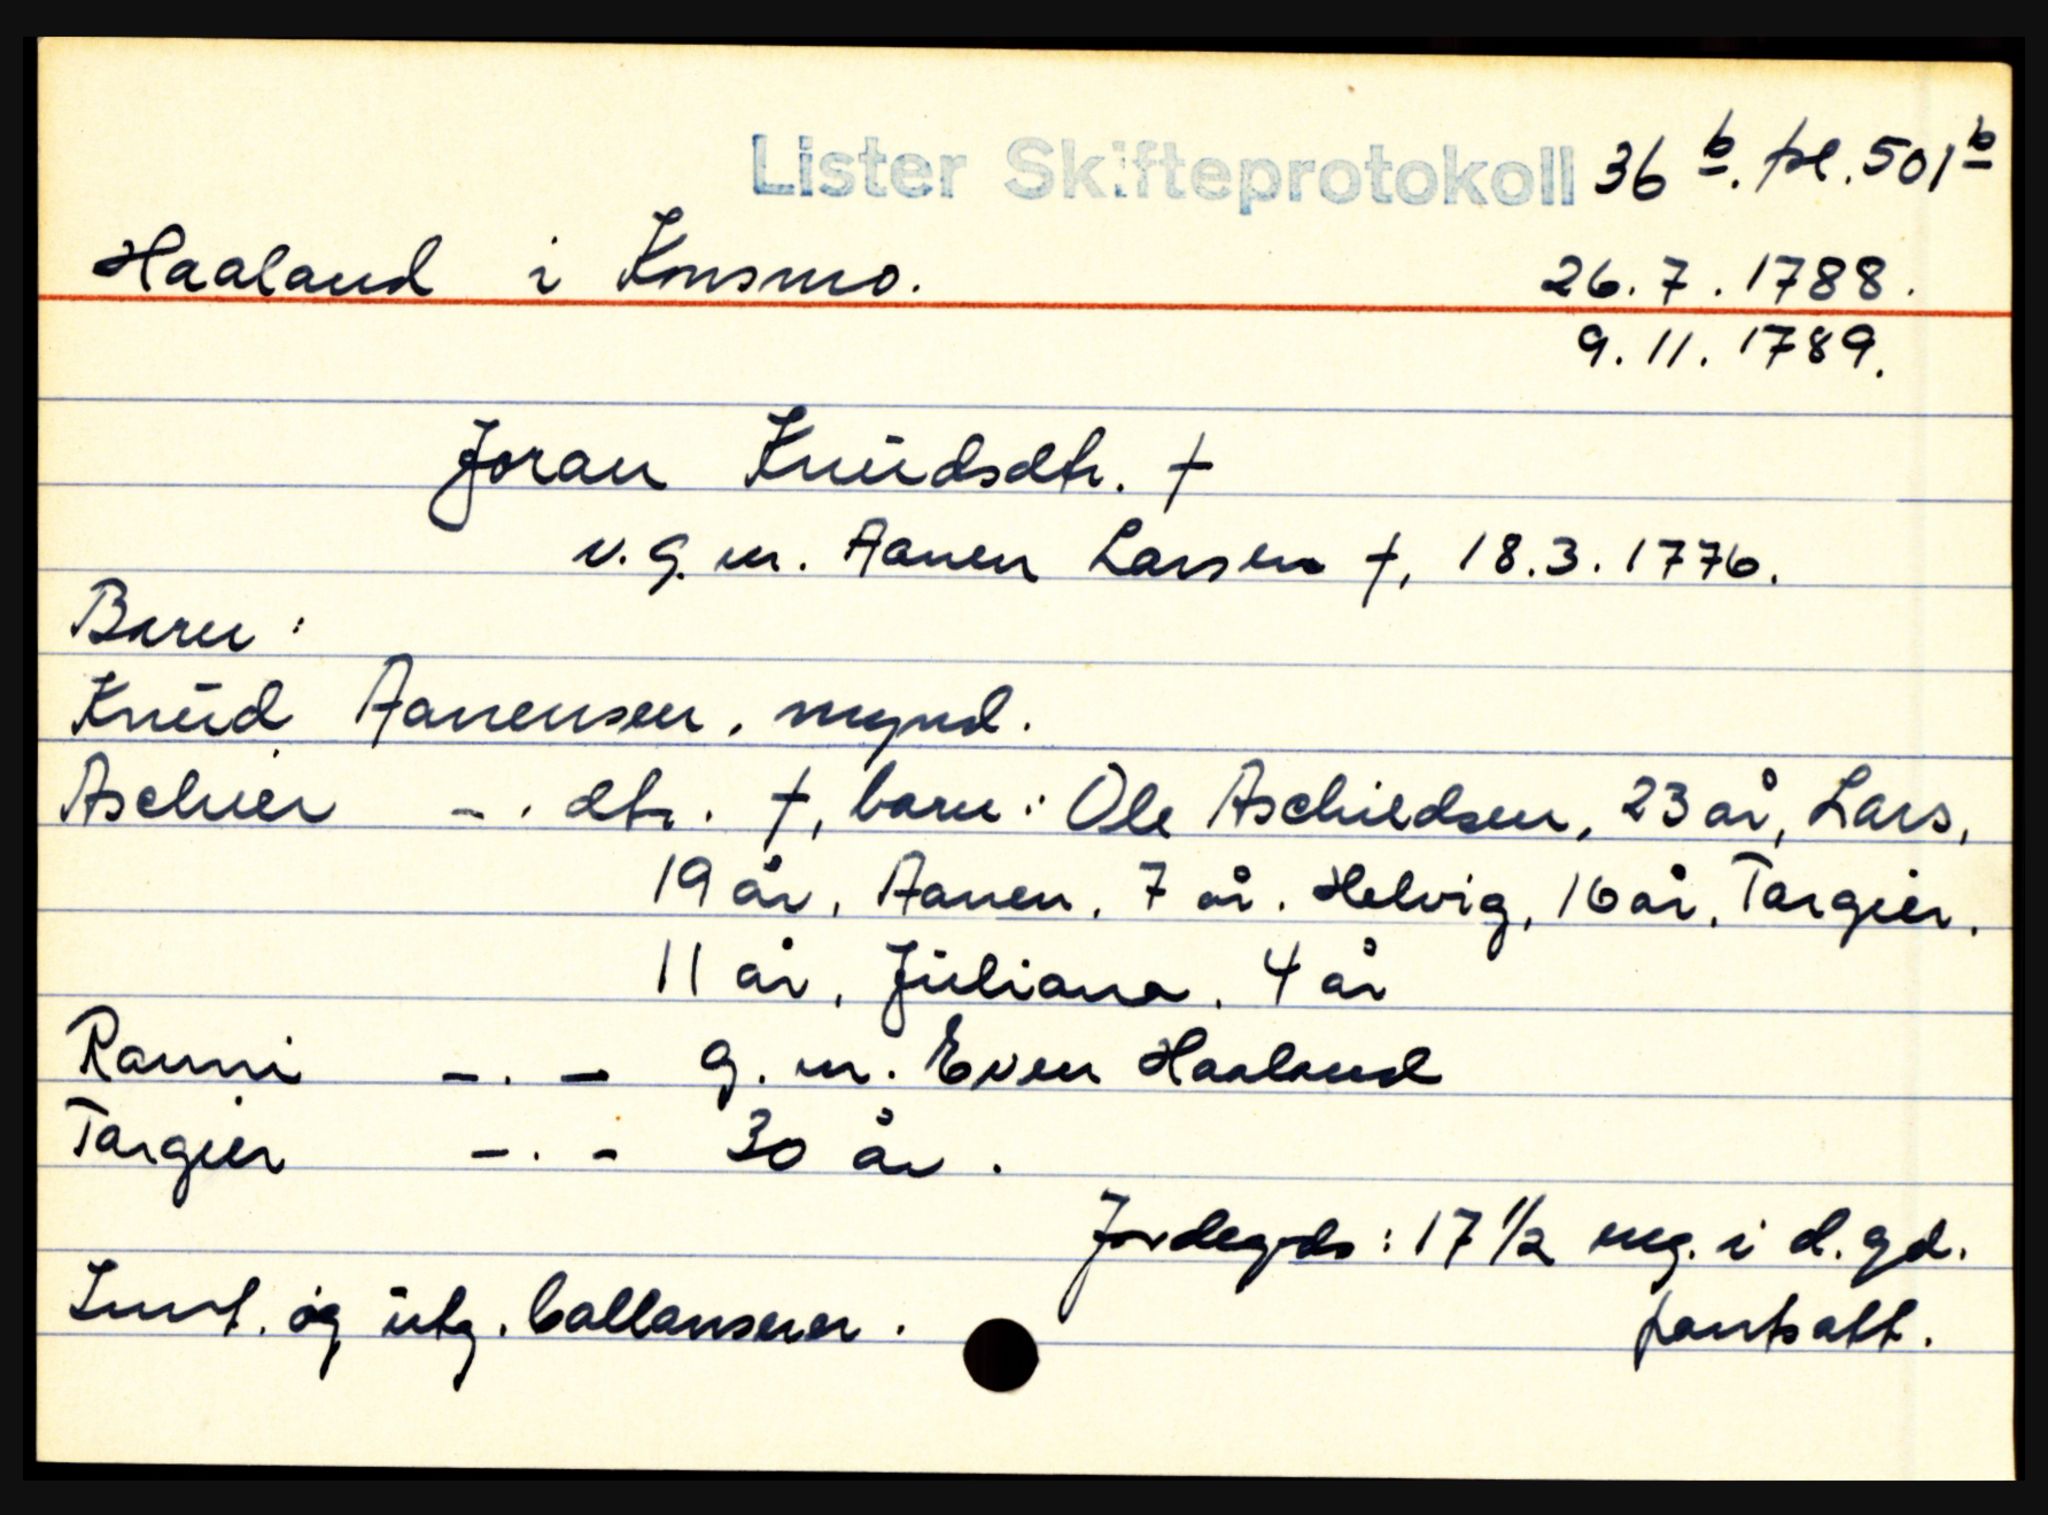 Lister Skifteprotokoll 36 b. pl. 501 b
Haaland i Konsmo. 26.7.1788.
9.11.1789.
Joran Knudsdtr. †
v.g.m. Aanen Larsen †, 18.3.1776.
Barn:
Knud Aanensen, mynd.
Aschier - . dtr. †, barn: Ole Aschildsen, 23 år, Lars,
19 år, Aanen, 7 år. Helvig, 16 år, Targier,
11 år, Juliana, 4 år
Ranni - . - g.m. Even Haaland
Targier - . - 30 år.
Jordegods: 17 1/2 mg. i d. gd.
Innt. og utg. ballanserer. pantsatt.